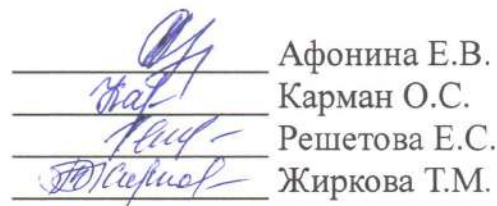 Афонина Е.В.
Карман О.С.
Решетова Е.С.
Жиркова Т.М.